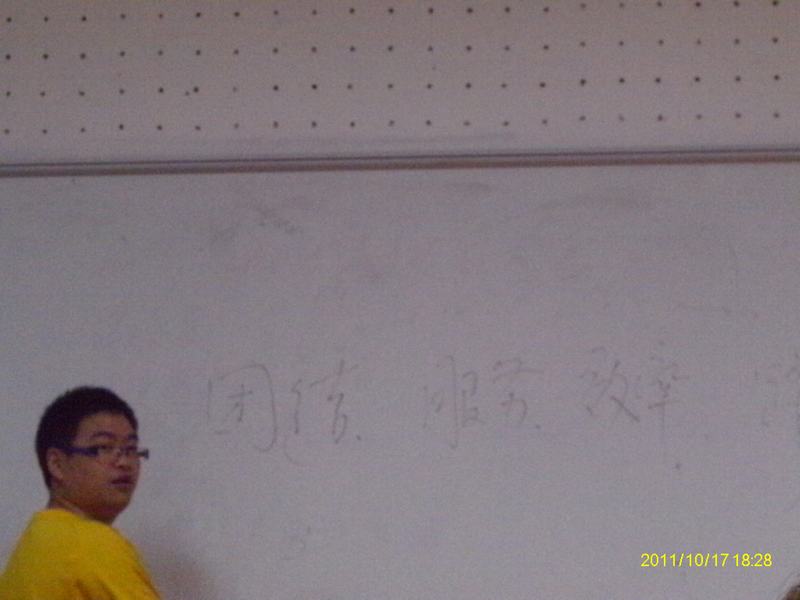 团结、服务、效率、
2011/10/17 18:28